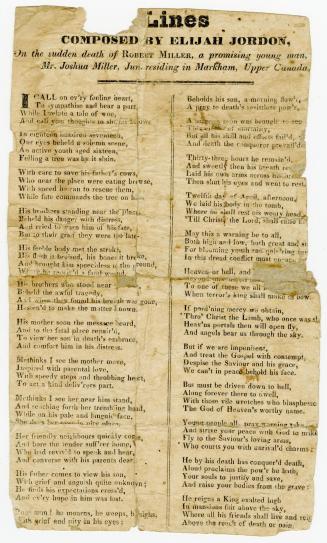 Lines
COMPOSED BY ELIJAH JORDON,
On the sudden death of ROBERT MILLER, a promising young man,
Mr. Joshua Miller, Jun. residing in Markham, Upper Canada.
I CALL on ev'ry feeling heart,
To sympathize and bear a part,
While I relate a tale of woe,
And call you thoughts to
In eighteen hundred seventeen,
Our eyes beheld a solemn scene,
An active youth aged sixteen,
Felling a tree was by it slain.
With care to save his father's cows,
Who near the place were eating browse,
With speed he ran to rescue them,
While fate commands the tree on him.
His brothers standing near the place,
Beheld his danger, with distress,
And cried to warn him of his fate,
But to their grief they were too late.
His feeble body met the stroke,
His flesh is bruised, his bones it broke,
And brought him speechless to the ground,
a fatal wound.
His brothers who stood near
Beheld the awful tragedy,
And when they found his breath was gone,
Hasten'd to make the matter known.
His mother soon the message heard,
And to the fatal place repair'd,
To view her son in death's embrace,
And comfort him in his distress.
Methinks I see the mother move,
Inspired with parental love,
With speedy steps and throbbing heart,
To act a kind deliv'rers part.
Methinks I see her near him stand,
And reaching forth her trembling hand,
While on his pale and bloody face,
She
Her friendly neighbours quickly come,
And bore the tender suff'rer home,
Who had reviv'd to speak and hear,
And converse with his parents dear.
His father comes to view his son,
With grief and anguish quite undone;
He finds his expectations cross'd,
And ev'ry hope in him was lost.
Poor man! he mourns, he weeps, he sighs,
With grief and pity in his eyes;
Beholds his son, a morning flow'r,
A prey to death's resistless pow'r.
A surgeon soon was brought to see
This of mortality,
But all his skill and efforts fail'd,
And death the conqueror prevail'd.
Thirty-three hours he remain'd,
And sweetly then his breath resign'd,
Laid his own arms across his breast,
Then shut his eyes and went to rest.
Twelfth day of April, afternoon,
We laid his body in the tomb,
Where he shall rest his weary head,
Till Christ, the Lord, shall raise the
May this a warning be to all,
Both high and low, both great and small,
For blooming youth and
In this dread conflict must
Heaven or hell, and
To one of these we all
When terror's king shall make us bow.
If pard'ning mercy we obtain,
Thro' Christ the Lamb, who once was slain,
Heav'ns portals then will open fly,
And angels bear us through the sky.
But if we are impenitent,
And treat the Gospel with contempt,
Despise the Saviour and his grace,
We can't in peace behold his face.
But must be driven down to hell,
Along forever there to dwell,
With those vile wretches who blaspheme
The God of Heaven's worthy name.
Young people all, pray, warning take
And strive your peace with God to make
Fly to the Saviour's loving arms,
Who courts you with unrival'd charms;
He by his death has conquer'd death,
Aloud proclaims the pow'r he hath,
Your souls to justify and save,
And raise your bodies from the grave:
He reigns a King exalted high
In mansions fair above the sky,
Where all his friends shall live and reign
Above the reach of death or pain.